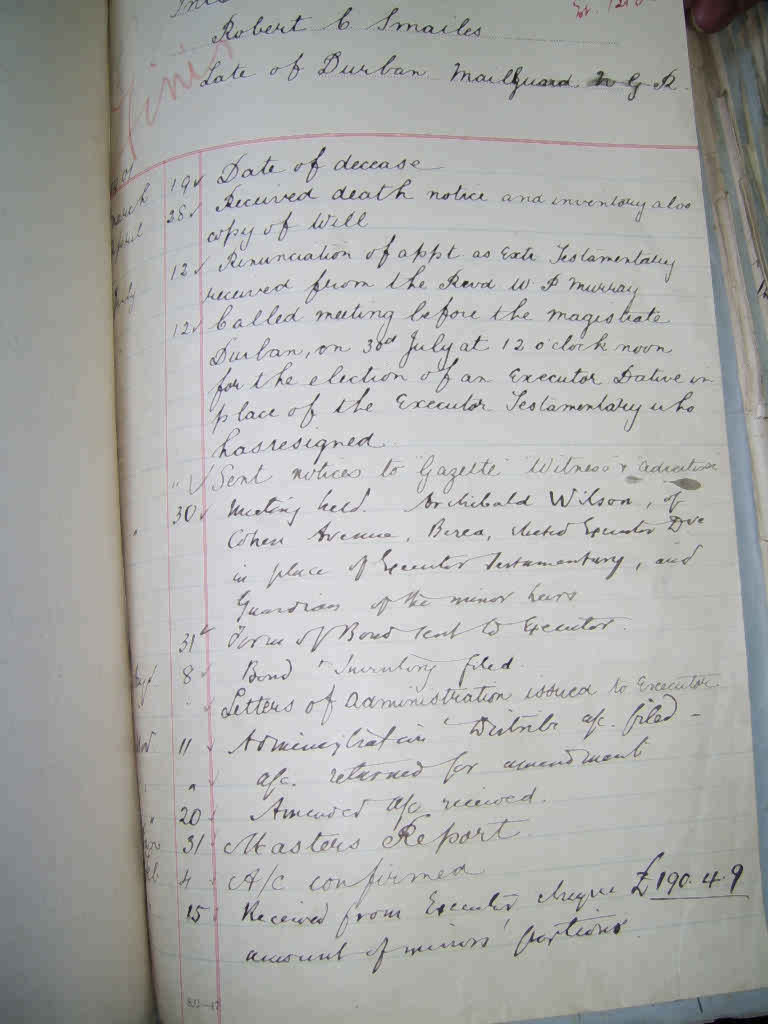 Robert C Smailes
Late of Durban Mail Guard N G R.
Finis
19 Date of decease
March 28 Received death notice and inventory also
April copy of Will
July 12 Renunciation of appt as Exte Testamentary
received from the Revd W P Murray
12 Called meeting before the magistrate
Durban, on 30d July at 12 o'clock noon
for the election of an Executor Dative in
place of the Executor Testamentary who
has resigned.
" Sent notices to Gazette Witness & advertiser
" 30 Meeting held. Archibald Wilson, of
Cohen Avenue, Berea, elected Executor Dve
in place of Executor Testamentary, and
Guardian of the minor heirs
31 Form of Bond sent to Executor.
Augt 8 Bond & Inventory filed.
Letters of Administration issued to Executor
Nov 11 Administration & Distribn a/c. filed -
" a/c. returned for amendment
" 20 Amended a/c received.
31 Masters Report
4 A/c confirmed
15 Received from Executor cheque £190.4.9
amount of minors' portions.